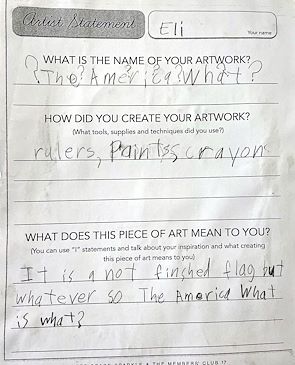 Artist Statement
Eli
Your name
WHAT IS THE NAME OF YOUR ARTWORK?
? The? America? What?
HOW DID YOU CREATE YOUR ARTWORK?
(What tools, supplies and techniques did you use?)
rulers, Paints, crayons
WHAT DOES THIS PIECE OF ART MEAN TO YOU?
(You can use "I" statements and talk about your inspiration and what creating
this piece of art means to you)
It is a not finshed flag but
whatever so The America What
is what?
SPARKLE & THE MEMBERS' CLUB